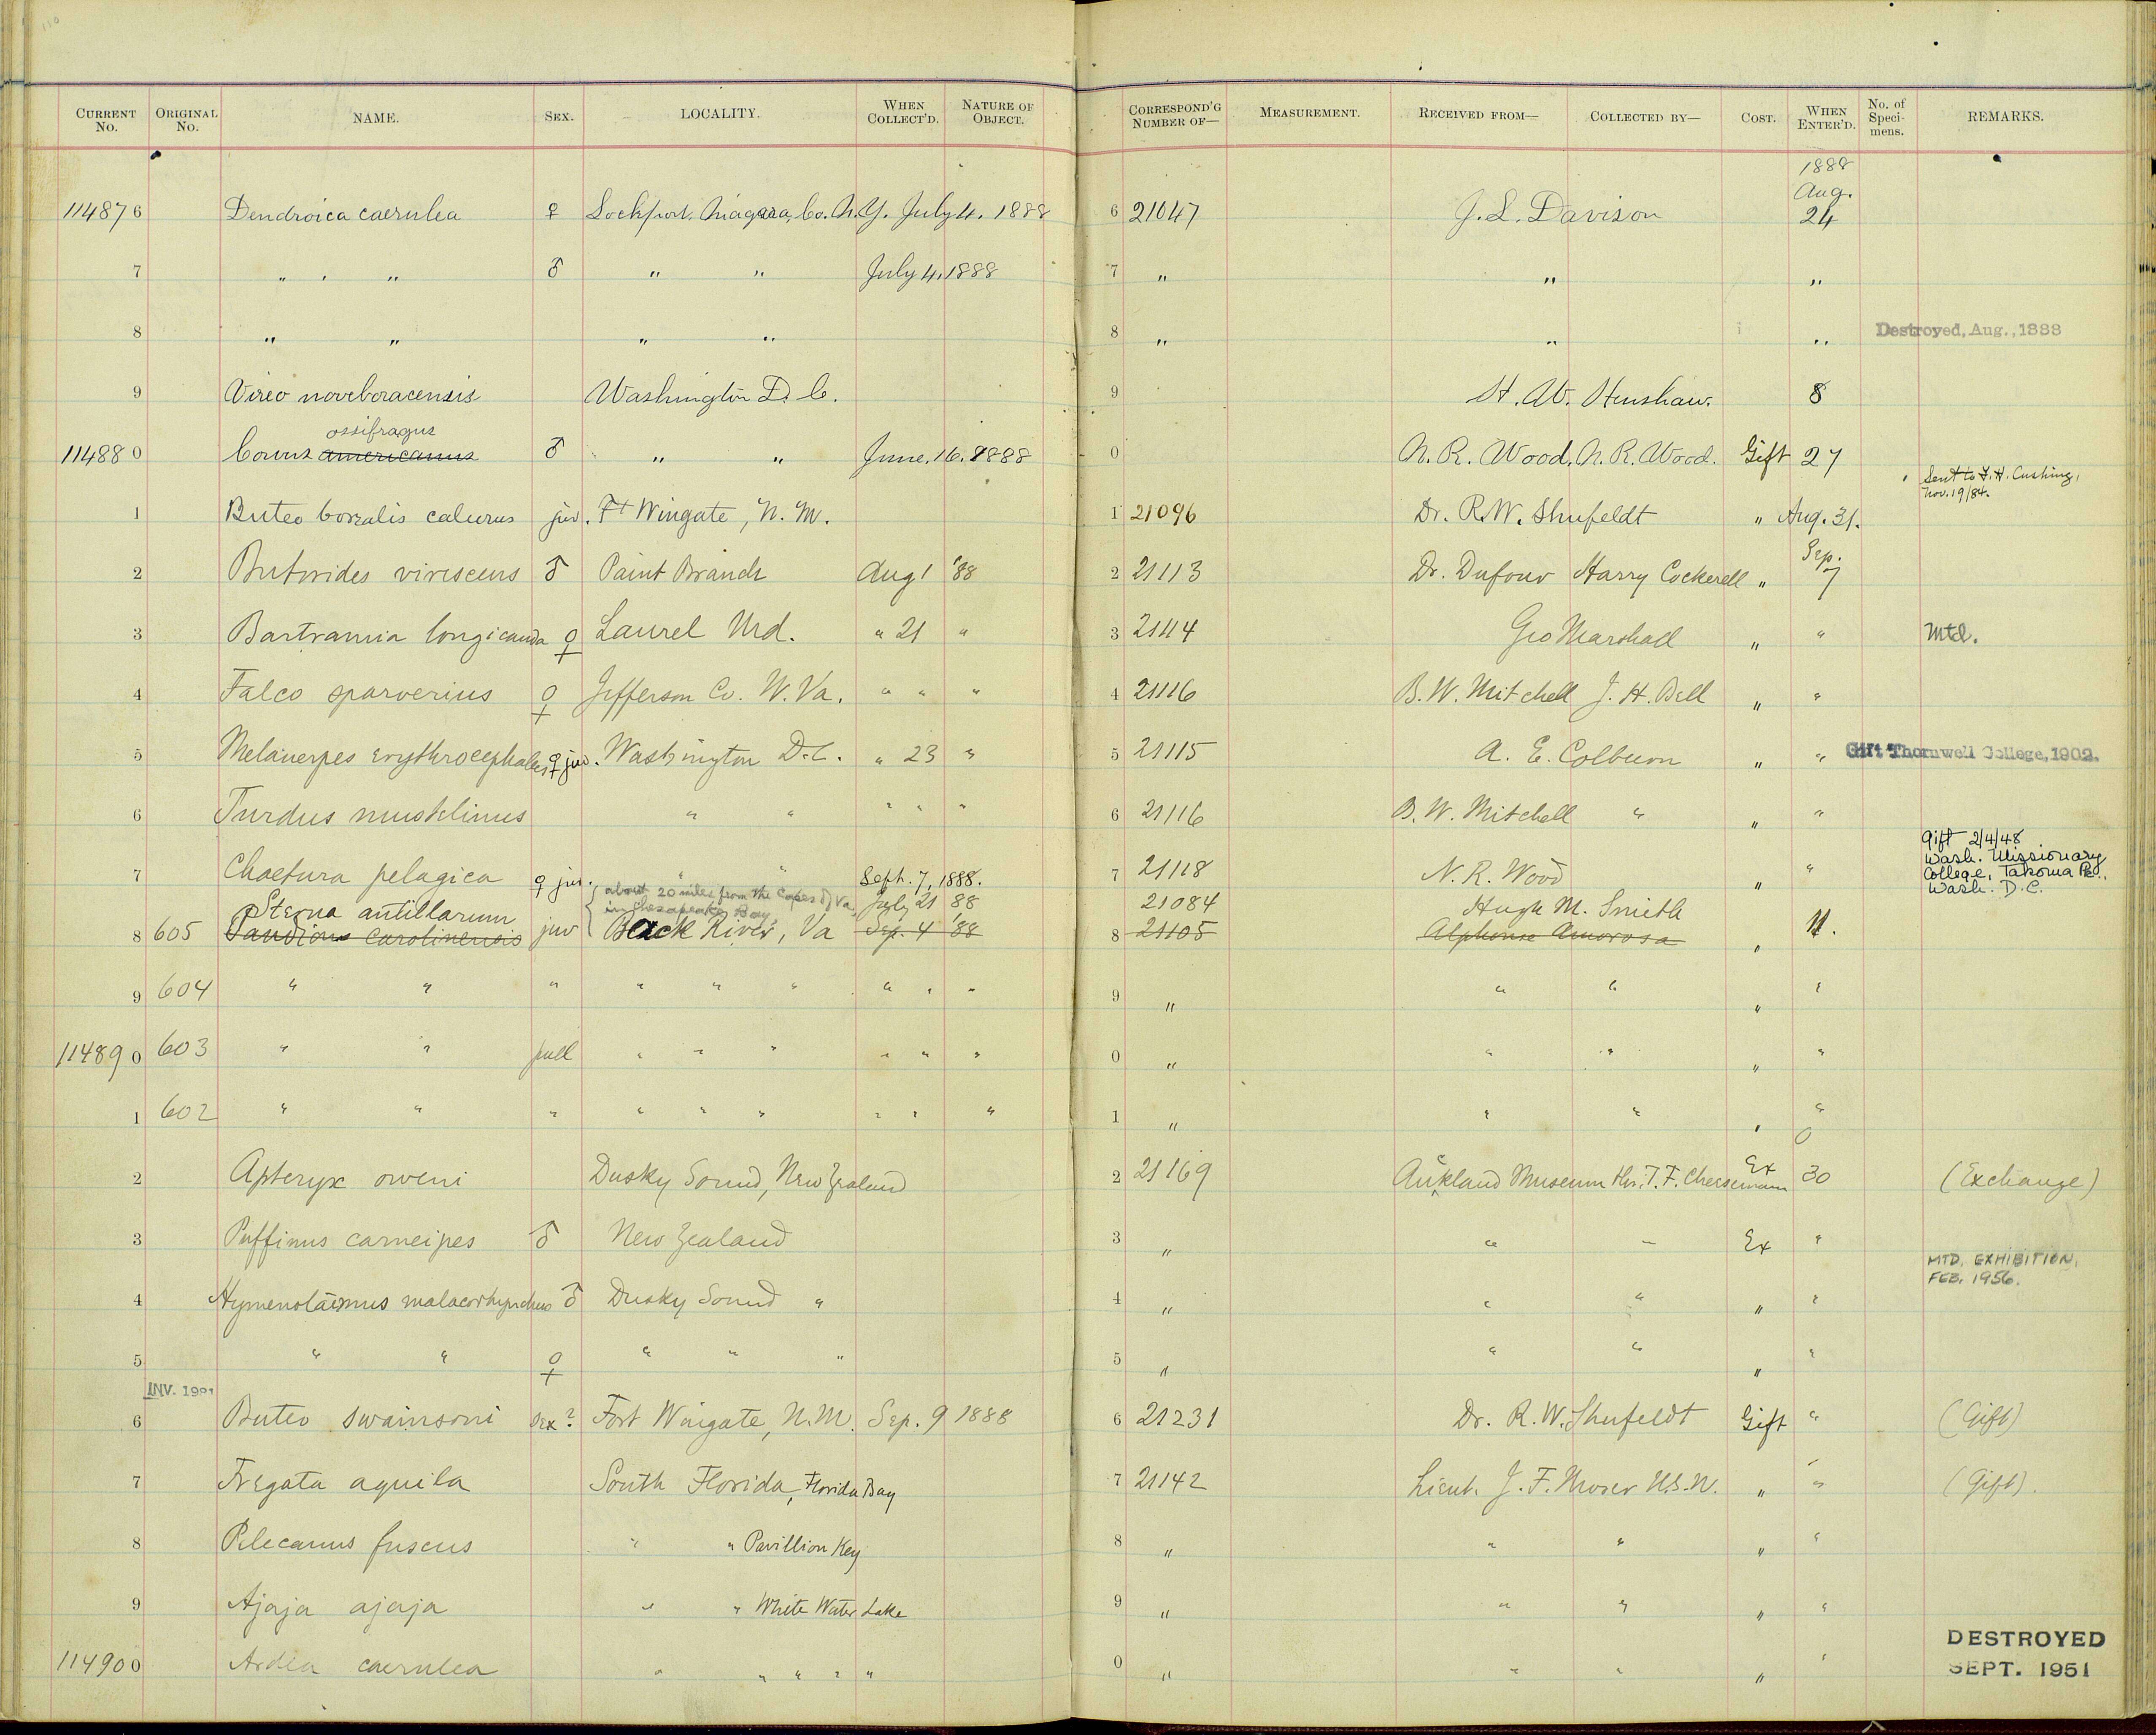 CURRENT No. ORIGINAL No. NAME. SEX. LOCALITY. WHEN COLLECT'D. NATURE OF OBJECT. CORRESPOND'G NUMBER OF— MEASUREMENT. RECEIVED FROM— COLLECTED BY— COST. WHEN ENTER'D. No. of Specimens. REMARKS.
1888
Aug.
114876 Dendroica caerulea ♀ Lockport. Niagara, Co. N.Y. July 4. 1888 6 21047 J. L. Davison 24
7 " " ♂ " " July 4, 1888 7 " " "
8 " " " " 8 " " " Destroyed, Aug., 1888
9 Vireo noveboracensis Washington D. C. 9 H. W. Henshaw. 8
ossifragus
114880 Corvus americanus ♂ " " June. 16. 1888 0 N. R. Wood. N. R. Wood. Gift 27
Sent to F. H. Cushing,
Nov. 19/84.
1 Buteo borealis calurus juv. Ft Wingate, N. M. 1 21096 Dr. R. W. Shufeldt " Aug. 31.
Sep.
2 Butorides virescens ♂ Paint Branch Aug 1 '88 2 21113 Dr. Dufour Harry Cockerell " 7
3 Bartramia longicauda ♀ Laurel Md. " 21 " 3 21114 Geo Marshall " " Mtd.
4 Falco sparverius ♀ Jefferson Co. W. Va. " " " 4 21116 B. W. Mitchell J. H. Bell " "
5 Melanerpes erythrocephalus ♀ juv. Washington D.C. " 23 " 5 21115 A. E. Colburn " " Gift Thornwell College, 1902.
6 Turdus mustelinus " " " " " 6 21116 B. W. Mitchell " " "
Gift 2/4/48
Wash. Missionary
College, Takoma Pk.,
Wash. D. C.
7 Chaetura pelagica ♀ juv. " " Sept. 7, 1888. 7 21118 N. R. Wood " "
about 20 miles from the Capes of Va.
in Chesapeake Bay,
Sterna antillarum July 21 88 21084 Hugh M. Smith
8 605 Pandion carolinensis juv Black River, Va Sep. 4 '88 8 21105 Alphonse Amorosa " 11.
9 604 " " " " " " " " " 9 " " " " "
114890 603 " " pull " " " " " " 0 " " " " "
1 602 " " " " " " " " " 1 " " " " "
2 Apteryx oweni Dusky Sound, New Zealand 2 21169 Auckland Museum Thr. T. F. Cheeseman Ex 30 (Exchange)
3 Puffinus carneipes ♂ New Zealand 3 " " " Ex "
MTD. EXHIBITION,
FEB. 1956.
4 Hymenolaimus malacorhynchus ♂ Dusky Sound " 4 " " " " "
5 " " ♀ " " " 5 " " " " "
INV. 1991
6 Buteo swainsoni sex? Fort Wingate, N.M. Sep. 9 1888 6 21231 Dr. R. W. Shufeldt Gift " (Gift)
7 Fregata aquila South Florida, Florida Bay 7 21142 Lieut. J. F. Moser U.S.N. " " (Gift).
8 Pelecanus fuscus " " Pavillion Key 8 " " " " "
9 Ajaja ajaja " " White Water Lake 9 " " " " "
114900 Ardea caerulea " " " " " 0 " " " " "
DESTROYED
SEPT. 1951